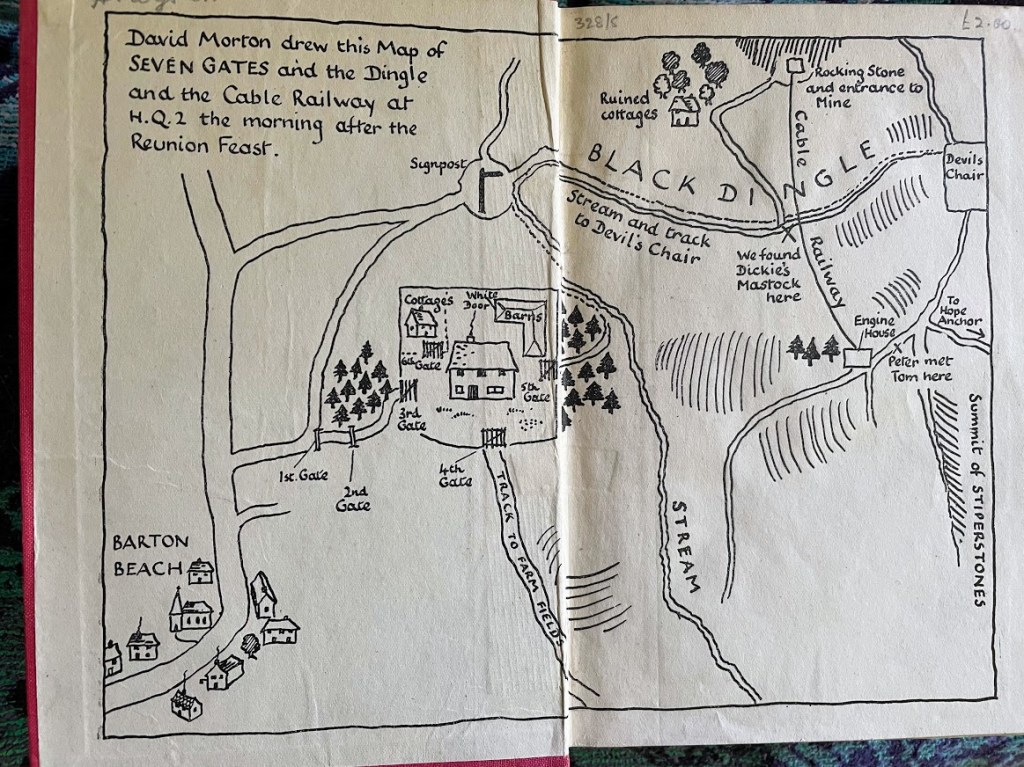 328/8
£2.00
David Morton drew this Map of
SEVEN GATES and the Dingle
and the Cable Railway at
H.Q.2 the morning after the
Reunion Feast.
Signpost
Ruined
cottages
Rocking Stone
and entrance to
Mine
Cable
Railway
BLACK DINGLE
Devils
Chair
Stream and track
to Devil's Chair
We found
Dickie's
Mastock
here
To
Hope
Anchor
Engine
House
Peter met
Tom here
Summit of STIPERSTONES
Cottages
White
Door
Barns
6th
Gate
5th
Gate
3rd
Gate
4th
Gate
1st. Gate
2nd
Gate
TRACK TO FARM FIELDS
STREAM
BARTON
BEACH